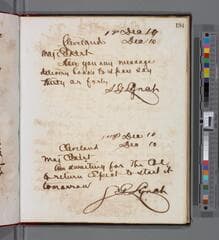 194
17 Dec 10
Cleveland Dec 10
Maj Eckert
Have you any message
delivery books to spare say
thirty or forty
J G Lynch
17 Dec 10
Cleveland Dec 10
Maj Eckert
Am waiting for the Col
return Expect to start it
tomorrow
J G Lynch